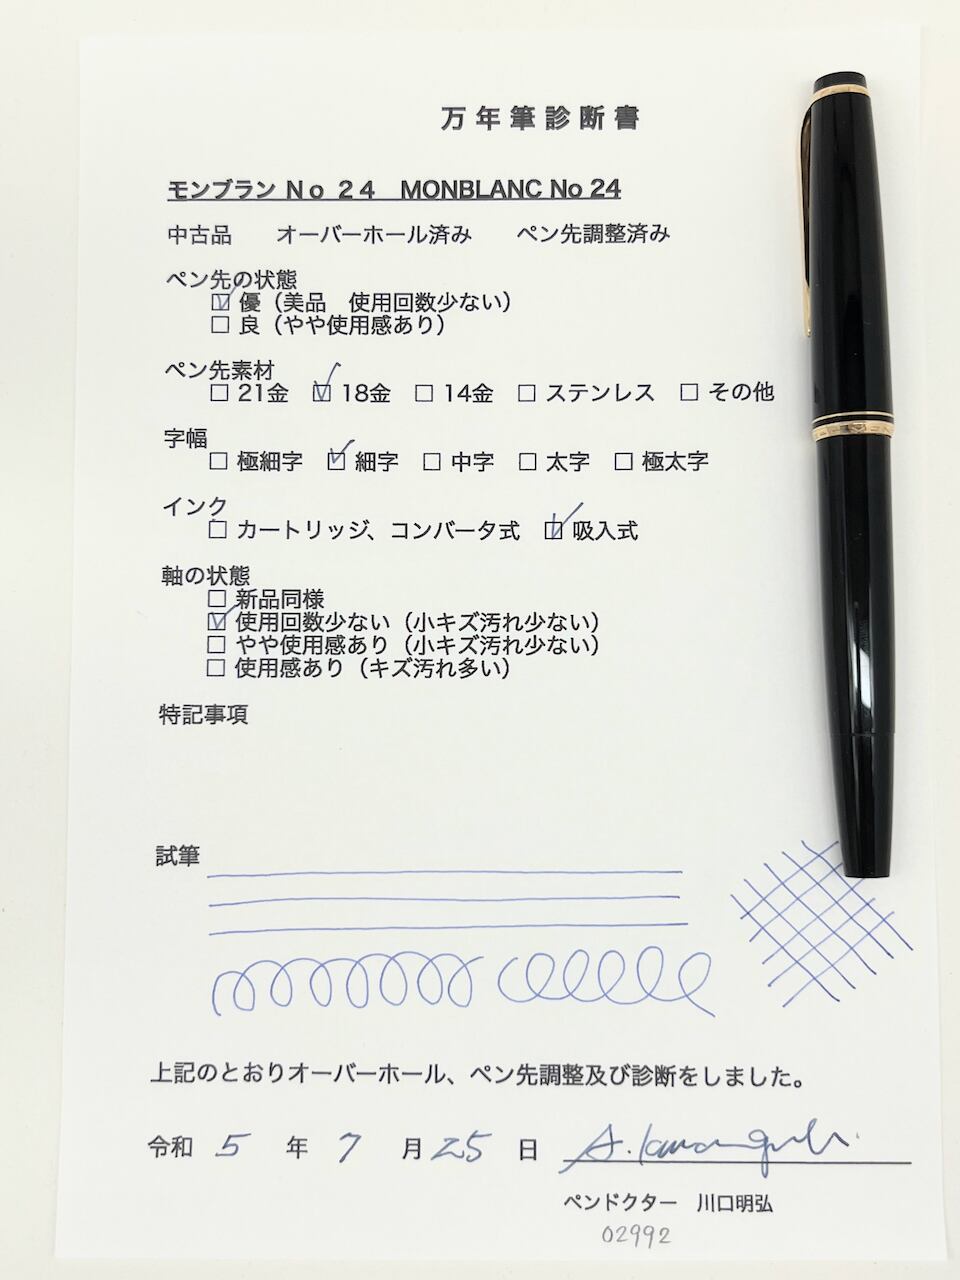 万年筆診断書
モンブラン No 24 MONBLANC No 24
中古品 オーバーホール済み ペン先調整済み
ペン先の状態
☑ 優（美品 使用回数少ない）
□ 良（やや使用感あり）
ペン先素材
□ 21金 ☑ 18金 □ 14金 □ ステンレス □ その他
字幅
□ 極細字 ☑ 細字 □ 中字 □ 太字 □ 極太字
インク
□ カートリッジ、コンバータ式 ☑ 吸入式
軸の状態
□ 新品同様
☑ 使用回数少ない（小キズ汚れ少ない）
□ やや使用感あり（小キズ汚れ少ない）
□ 使用感あり（キズ汚れ多い）
特記事項
試筆
上記のとおりオーバーホール、ペン先調整及び診断をしました。
令和 5 年 7 月 25 日 A. Kawaguchi
ペンドクター 川口明弘
02992